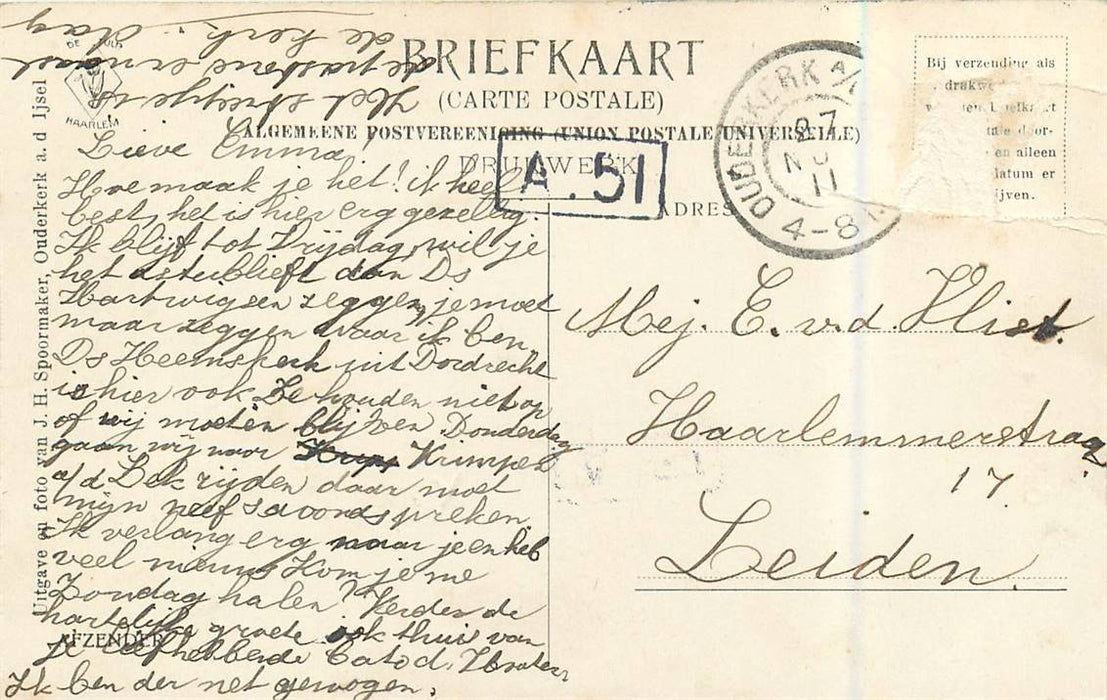 BRIEFKAART
(CARTE POSTALE)
ALGEMEENE POSTVEREENIGING (UNION POSTALE UNIVERSELLE)
DRUKWERK
A. 51
ADRES
OUDERKERK A/
27
NO
11
4-8
Bij verzending als
drukwe
en alleen
datum er
ijven.
DE
HAARLEM
Uitgave en foto van J. H. Spoormaker, Ouderkerk a. d Ijsel
AFZENDER
Het streepje is
de pastorie ernaast
de kerk. dag
Lieve Emma
Hoe maak je het! ik heel
best, het is hier erg gezellig.
Ik blijf tot Vrijdag, wil je
het astublieft dan Ds
Hartwigsen zeggen, je moet
maar zeggen waar ik ben
Ds Heemskerk uit Dordrecht
is hier ook Ze houden niet op
of wij moeten blijven Donderdag
gaan wij naar Krimpen
a/d Lek rijden daar moet
mijn neef s avonds preken
Ik verlang erg naar je en heb
veel nieuws Kom je me
Zondag halen? Verder de
hartelijke groete ook thuis van
je liefhebbende Cato d.
Ik ben der net gewogen.
Mej. E. v. d. Vliet.
Haarlemmerstraat
17
Leiden.